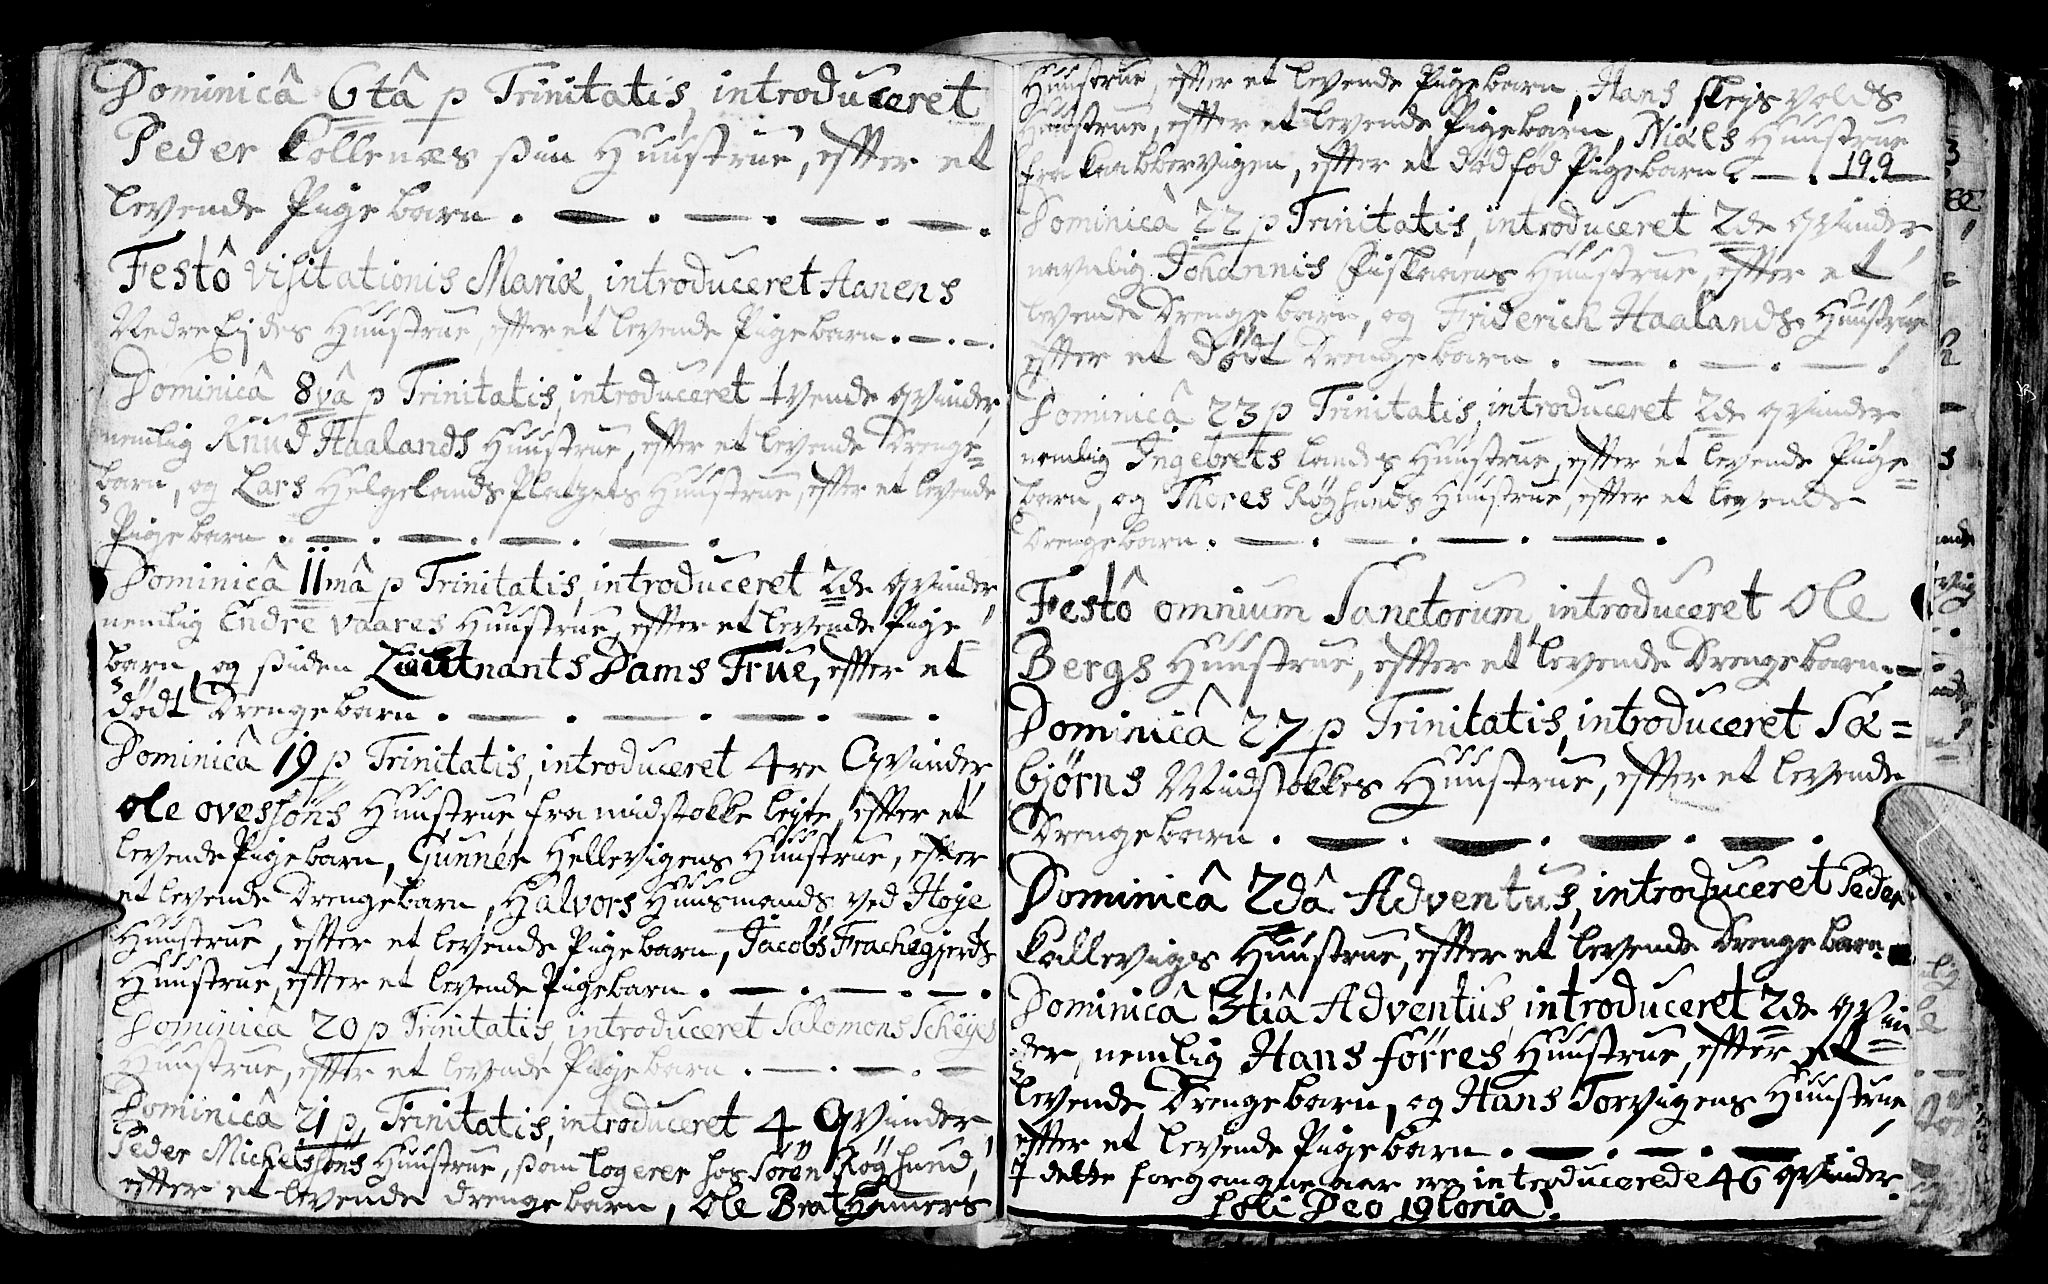 Dominicâ 6tâ p Trinitatis, introduceret
Peder Kollenæs sin Huustrue, efter et
levende Pigebarn.
Festô Visitationis Mariæ, introduceret Aanens
Nedre Ejdes Huustrue, efter et levende Pigebarn.
Dominicâ 8vâ p Trinitatis, introduceret tvende qvinder,
nemlig Knud Haalands Huustrue, efter et levende Drenge=
barn, og Lars Helgelands Platzets Huustrue, efter et levende
Pigebarn.
Dominicâ 11mâ p Trinitatis, introduceret 2de qvinder,
nemlig Endre Vaares Huustrue, efter et levende Pige
barn, og siden Lieutnants Dams Frue, efter et
dødt Drengebarn.
Dominicâ 19 p Trinitatis, introduceret 4re Qvinder,
Ole ovessøns Huustrue fra midstokke lejte, efter et
levende Pigebarn, Gunner Hellevigens Huustrue, efter
et levende Drengebarn, Halvors Huusmands ved Høje
Huustrue, efter et levende Pigebarn, Jacobs Frachegjerds
Huustrue, efter et levende Pigebarn.
Dominicâ 20 p Trinitatis, introduceret Salomons Schejes
Huustrue, efter et levende Pigebarn.
Dominicâ 21 p Trinitatis, introduceret 4 Qvinder,
Peder Michelssøns Huustrue, som logerer hos Søren Røghund,
efter et levende drengebarn, Ole Brat Hamers
Huustrue, efter et levende Pigebarn, Hans Slejsvolds
Huustrue, efter et levende Pigebarn, Niæls Huustrue
fra Kaabbervigen, efter et død fød Pigebarn. 199
Dominicâ 22 p Trinitatis, introduceret 2de qvinder,
nemlig Johannis Huustrue, efter et
levende Drengebarn, og Friderich Haalands Huustrue
efter et dødt Drengebarn.
Dominicâ 23 p Trinitatis, introduceret 2de qvinder
nemlig Ingebrets Landes Huustrue, efter et levende Pige=
barn, og Thores Røghunds Huustrue, efter et levende
Drengebarn.
Festô omnium Sanctorum, introduceret Ole
Bergs Huustrue, efter et levende Drengebarn.
Dominicâ 27 p Trinitatis, introduceret Sæ=
bjørns Midstokkes Huustrue, efter et levende
Drengebarn.
Dominicâ 2dâ Adventus, introduceret Peder
Kallevigs Huustrue, efter et levende Drengebarn.
Dominicâ 3tiâ Adventus introduceret 2de qvin=
der, nemlig Hans Førres Huustrue, efter et
levende Drengebarn, og Hans Torvigens Huustrue,
efter et levende Pigebarn.
I dette forgangne aar er introducerede 46 qvinder.
Soli Deo Gloria.